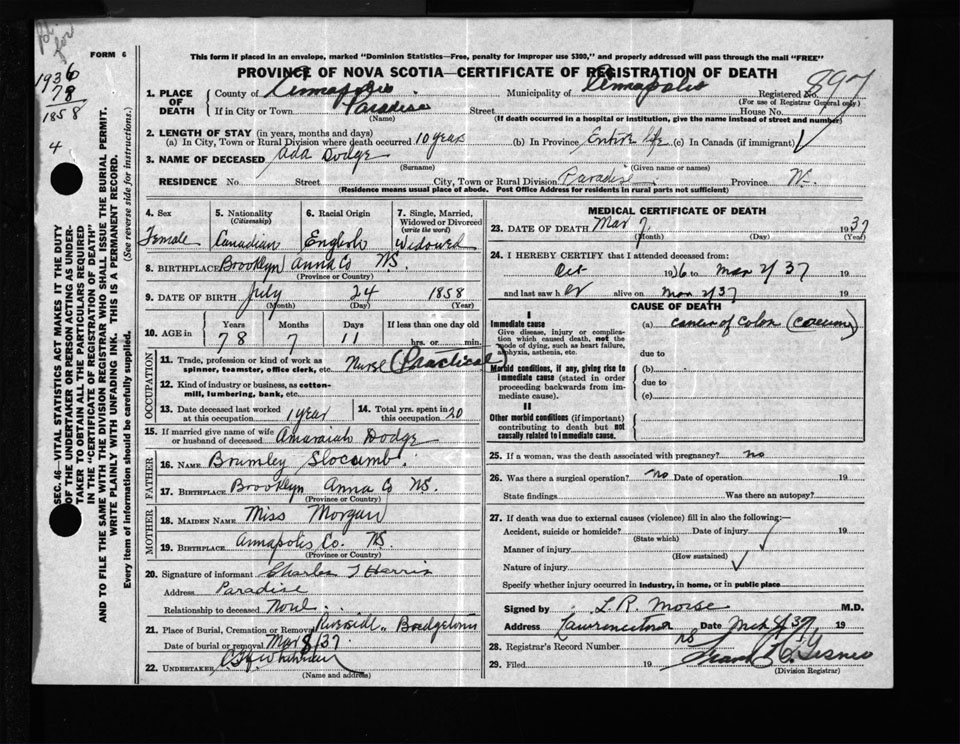 FORM 6
This form if placed in an envelope, marked "Dominion Statistics—Free, penalty for improper use $300," and properly addressed will pass through the mail "FREE"
PROVINCE OF NOVA SCOTIA—CERTIFICATE OF REGISTRATION OF DEATH
1936
78
1858
4
897
SEC. 46—VITAL STATISTICS ACT MAKES IT THE DUTY
OF THE UNDERTAKER OR PERSON ACTING AS UNDER-
TAKER TO OBTAIN ALL THE PARTICULARS REQUIRED
IN THE "CERTIFICATE OF REGISTRATION OF DEATH"
AND TO FILE THE SAME WITH THE DIVISION REGISTRAR WHO SHALL ISSUE THE BURIAL PERMIT.
WRITE PLAINLY WITH UNFADING INK. THIS IS A PERMANENT RECORD.
Every item of information should be carefully supplied. (See reverse side for instructions.)
1. PLACE OF DEATH County of Annapolis Municipality of Annapolis Registered No.
(For use of Registrar General only)
If in City or Town Paradise Street House No.
(Name) (If death occurred in a hospital or institution, give name instead of street and number)
2. LENGTH OF STAY (in years, months and days)
(a) In City, Town or Rural Division where death occurred 10 years (b) In Province Entire life (c) In Canada (if immigrant)
3. NAME OF DECEASED Ada Dodge
(Surname) (Given name or names)
RESIDENCE No. Street City, Town or Rural Division Paradise Province N.S.
(Residence means usual place of abode. Post Office Address for residents in rural parts not sufficient)
4. Sex 5. Nationality (Citizenship) 6. Racial Origin 7. Single, Married, Widowed or Divorced (write the word)
Female Canadian English Widowed
8. BIRTHPLACE Brooklyn Anna Co N.S.
(Province or Country)
9. DATE OF BIRTH July 24 1858
(Month) (Day) (Year)
10. AGE in Years Months Days If less than one day old
78 7 11 hrs. or min.
OCCUPATION
11. Trade, profession or kind of work as spinner, teamster, office clerk, etc. Nurse (Practical)
12. Kind of industry or business, as cotton-mill, lumbering, bank, etc.
13. Date deceased last worked at this occupation 1 year 14. Total yrs. spent in this occupation 20
15. If married give name of wife or husband of deceased Amaraiah Dodge
FATHER
16. NAME Brumley Slocumb
17. BIRTHPLACE Brooklyn Anna Co N.S.
(Province or Country)
MOTHER
18. MAIDEN NAME Miss Morgan
19. BIRTHPLACE Annapolis Co. N.S.
(Province or Country)
20. Signature of informant Charles T Harris
Address Paradise
Relationship to deceased None
21. Place of Burial, Cremation or Removal Riverside Bridgetown
Date of burial or removal Mar 8/37
22. UNDERTAKER
(Name and address)
MEDICAL CERTIFICATE OF DEATH
23. DATE OF DEATH Mar 7, 1937
(Month) (Day) (Year)
24. I HEREBY CERTIFY that I attended deceased from:
Oct 1936 to Mar 7/37 19
and last saw her alive on Mar 7/37 19
CAUSE OF DEATH
I
Immediate cause
Give disease, injury or complication which caused death, not the mode of dying, such as heart failure, asphyxia, asthenia, etc.
(a) cancer of colon
due to
Morbid conditions, if any, giving rise to immediate cause (stated in order proceeding backwards from immediate cause).
(b)
due to
(c)
II
Other morbid conditions (if important) contributing to death but not causally related to immediate cause.
25. If a woman, was the death associated with pregnancy? no
26. Was there a surgical operation? no Date of operation
State findings Was there an autopsy?
27. If death was due to external causes (violence) fill in also the following:—
Accident, suicide or homicide? Date of injury 19
(State which)
Manner of injury
(How sustained)
Nature of injury
Specify whether injury occurred in industry, in home, or in public place
Signed by L. R. Morse M.D.
Address Lawrencetown Date Mch 8/37 19
28. Registrar's Record Number
29. Filed 19
(Division Registrar)